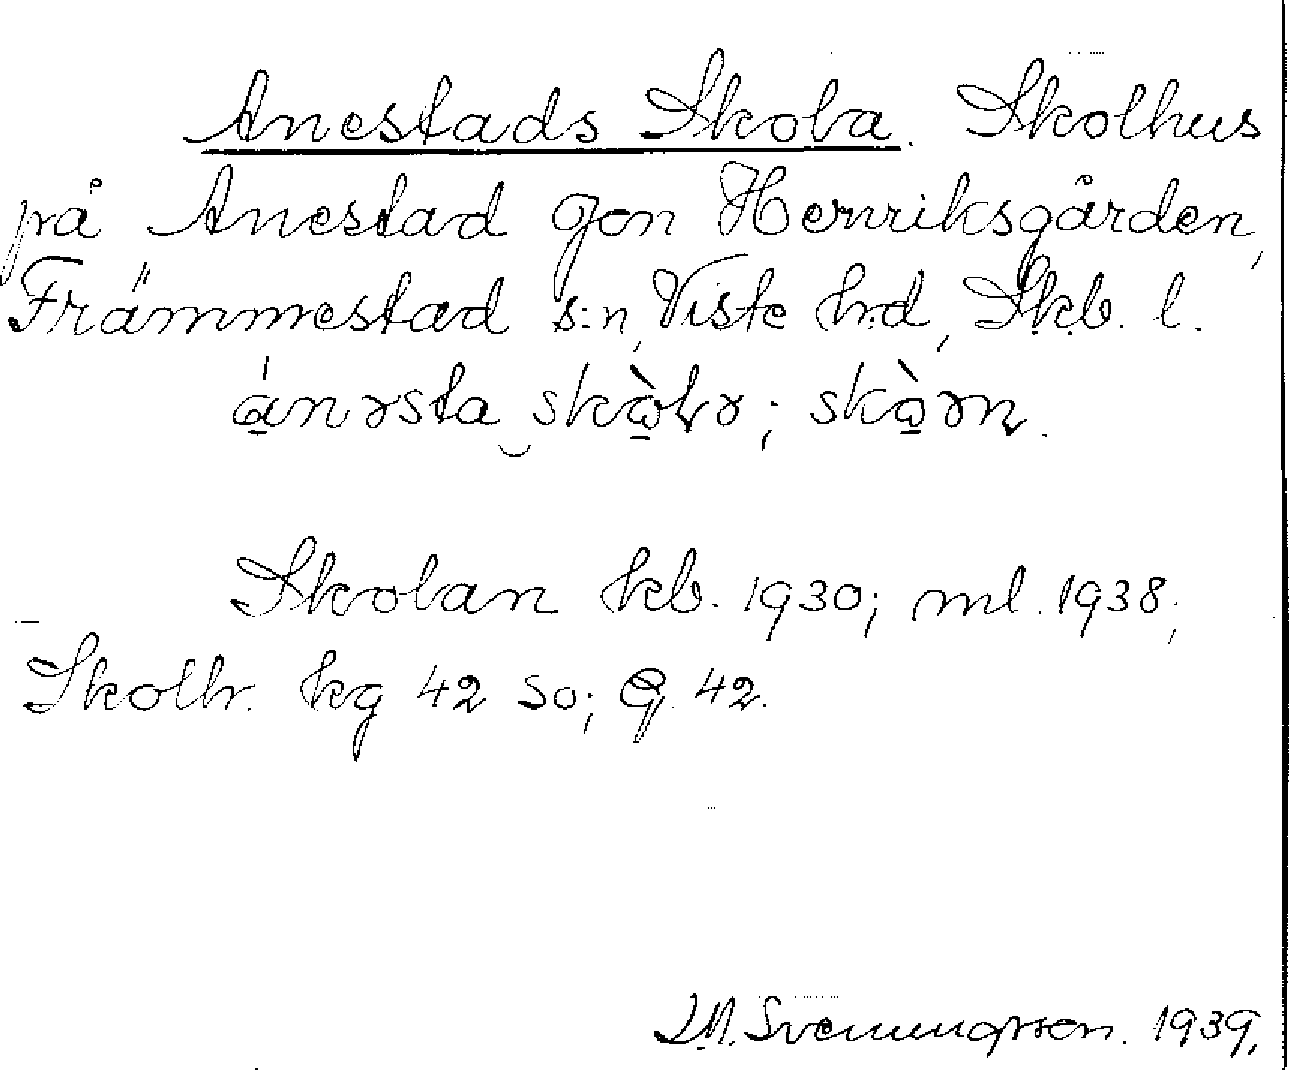 Anestads Skola. Skolhus
på Anestad Gon Henriksgården,
Främmestad s:n, Viste hd, Skb. l.
skolan
Skolan kb. 1930; ml. 1938;
Skolh. kg 42 so; G. 42.
Svenungsson. 1939.